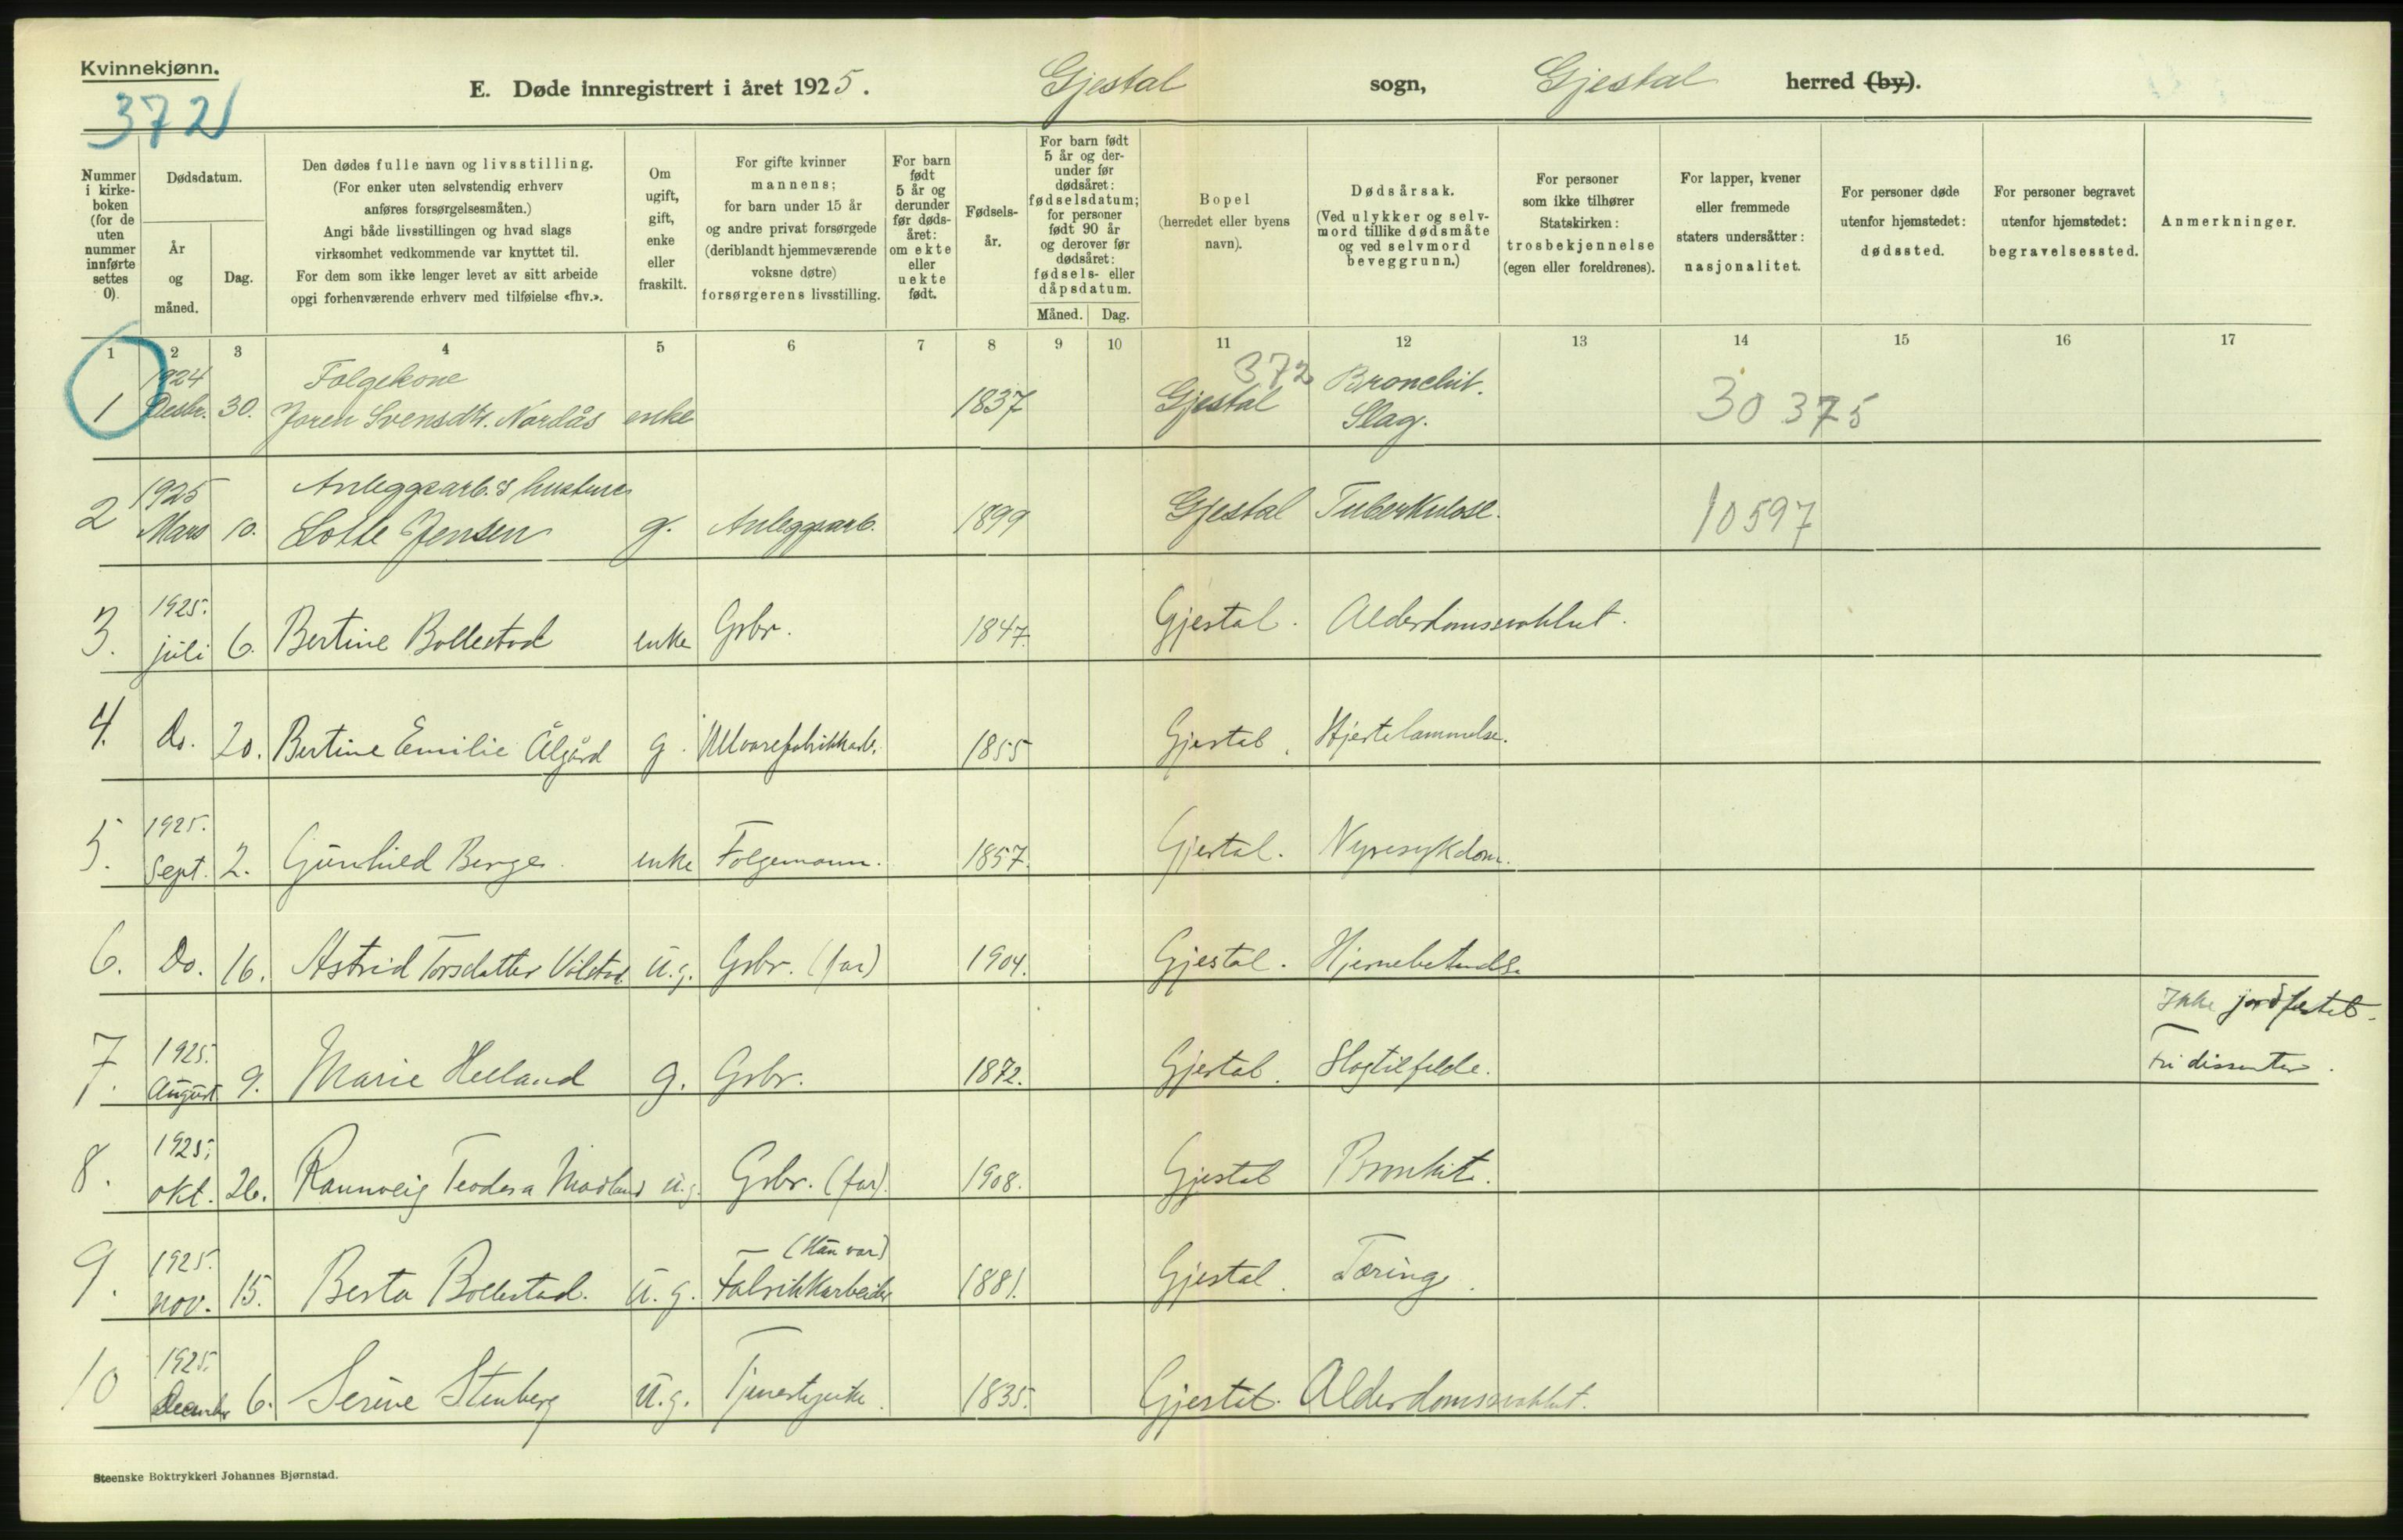 Kvinnekjønn.
372
E. Døde innregistrert i året 1925. Gjestal sogn, Gjestal herred (by).
Nummer i kirkeboken (for de uten nummer innførte settes 0).
Dødsdatum.
År og måned.
Dag.
Den dødes fulle navn og livsstilling.
(For enker uten selvstendig erhverv
anføres forsørgelsesmåten.)
Angi både livsstillingen og hvad slags
virksomhet vedkommende var knyttet til.
For dem som ikke lenger levet av sitt arbeide
opgi forhenværende erhverv med tilføielse «fhv.».
Om ugift, gift, enke eller fraskilt.
For gifte kvinner
mannens;
for barn under 15 år
og andre privat forsørgede
(deriblandt hjemmeværende
voksne døtre)
forsørgerens livsstilling.
For barn født 5 år og derunder før dødsåret: om ekte eller uekte født.
Fødsels-
år.
For barn født
5 år og der-
under før
dødsåret:
fødselsdatum;
for personer
født 90 år
og derover før
dødsåret:
fødsels- eller
dåpsdatum.
Måned. Dag.
Bopel
(herredet eller byens
navn).
Dødsårsak.
(Ved ulykker og selv-
mord tillike dødsmåte
og ved selvmord
beveggrunn.)
For personer
som ikke tilhører
Statskirken:
trosbekjennelse
(egen eller foreldrenes).
For lapper, kvener
eller fremmede
staters undersåtter:
nasjonalitet.
For personer døde
utenfor hjemstedet:
dødssted.
For personer begravet
utenfor hjemstedet:
begravelsessted.
Anmerkninger.
1 2 3 4 5 6 7 8 9 10 11 12 13 14 15 16 17
1924 Folgekone 372 Bronchit.
1 Desbr. 30. Joren Svensdtr. Nordås enke 1837 Gjestal Slag. 30 375
1925 Anleggsarb.s hustru
2 Mars 10. Lotte Jensen g. Anleggsarb. 1899 Gjestal Tuberkulose. 10597
1925.
3. juli 6. Bertine Bollestad enke Gsbr. 1847. Gjestal. Alderdomssvakhet.
4. Do. 20. Bertine Emilie Ålgård g. Ullvarefabrikkarb. 1855 Gjestal. Hjertelammelse.
1925.
5. Sept. 2. Gunhild Berge enke Folgemann. 1857. Gjestal. Nyresykdom.
6. Do. 16. Astrid Torsdatter Vølstad u.g. Gsbr. (far) 1904. Gjestal. Hjernebetendelse
Ikke jordfestet.
1925. Fri dissenter.
7. August 9. Marie Helland g. Gsbr. 1872. Gjestal. Slagtilfelde.
1925.
8. okt. 26. Rannveig Teodora Madland u.g. Gsbr. (far). 1908. Gjestal Bronkit.
1925. (Han var)
9. nov. 15. Berta Bollestad. u.g. Fabrikkarbeider 1881. Gjestal. Tæring.
1925.
10 December 6. Serine Stenberg u.g. Tjenestepike. 1835. Gjestal. Alderdomssvakhet.
Steenske Boktrykkeri Johannes Bjørnstad.